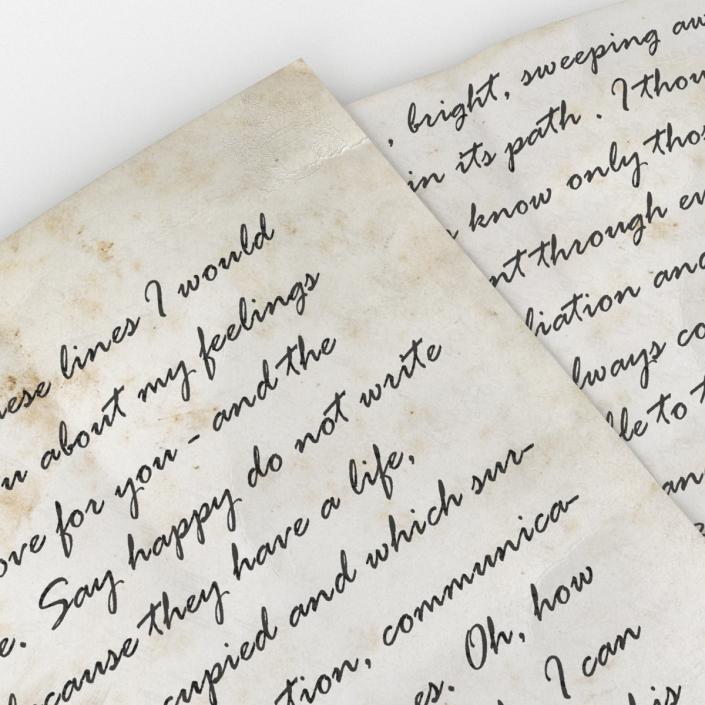 these lines I would
u about my feelings
ove for you - and the
e. Say happy do not write
because they have a life,
cupied and which sur-
tion, communica-
es. Oh, how
I can
his
, bright, sweeping aw
in its path . I thou
know only thos
nt through ev
liation and
lways co
le to t
an